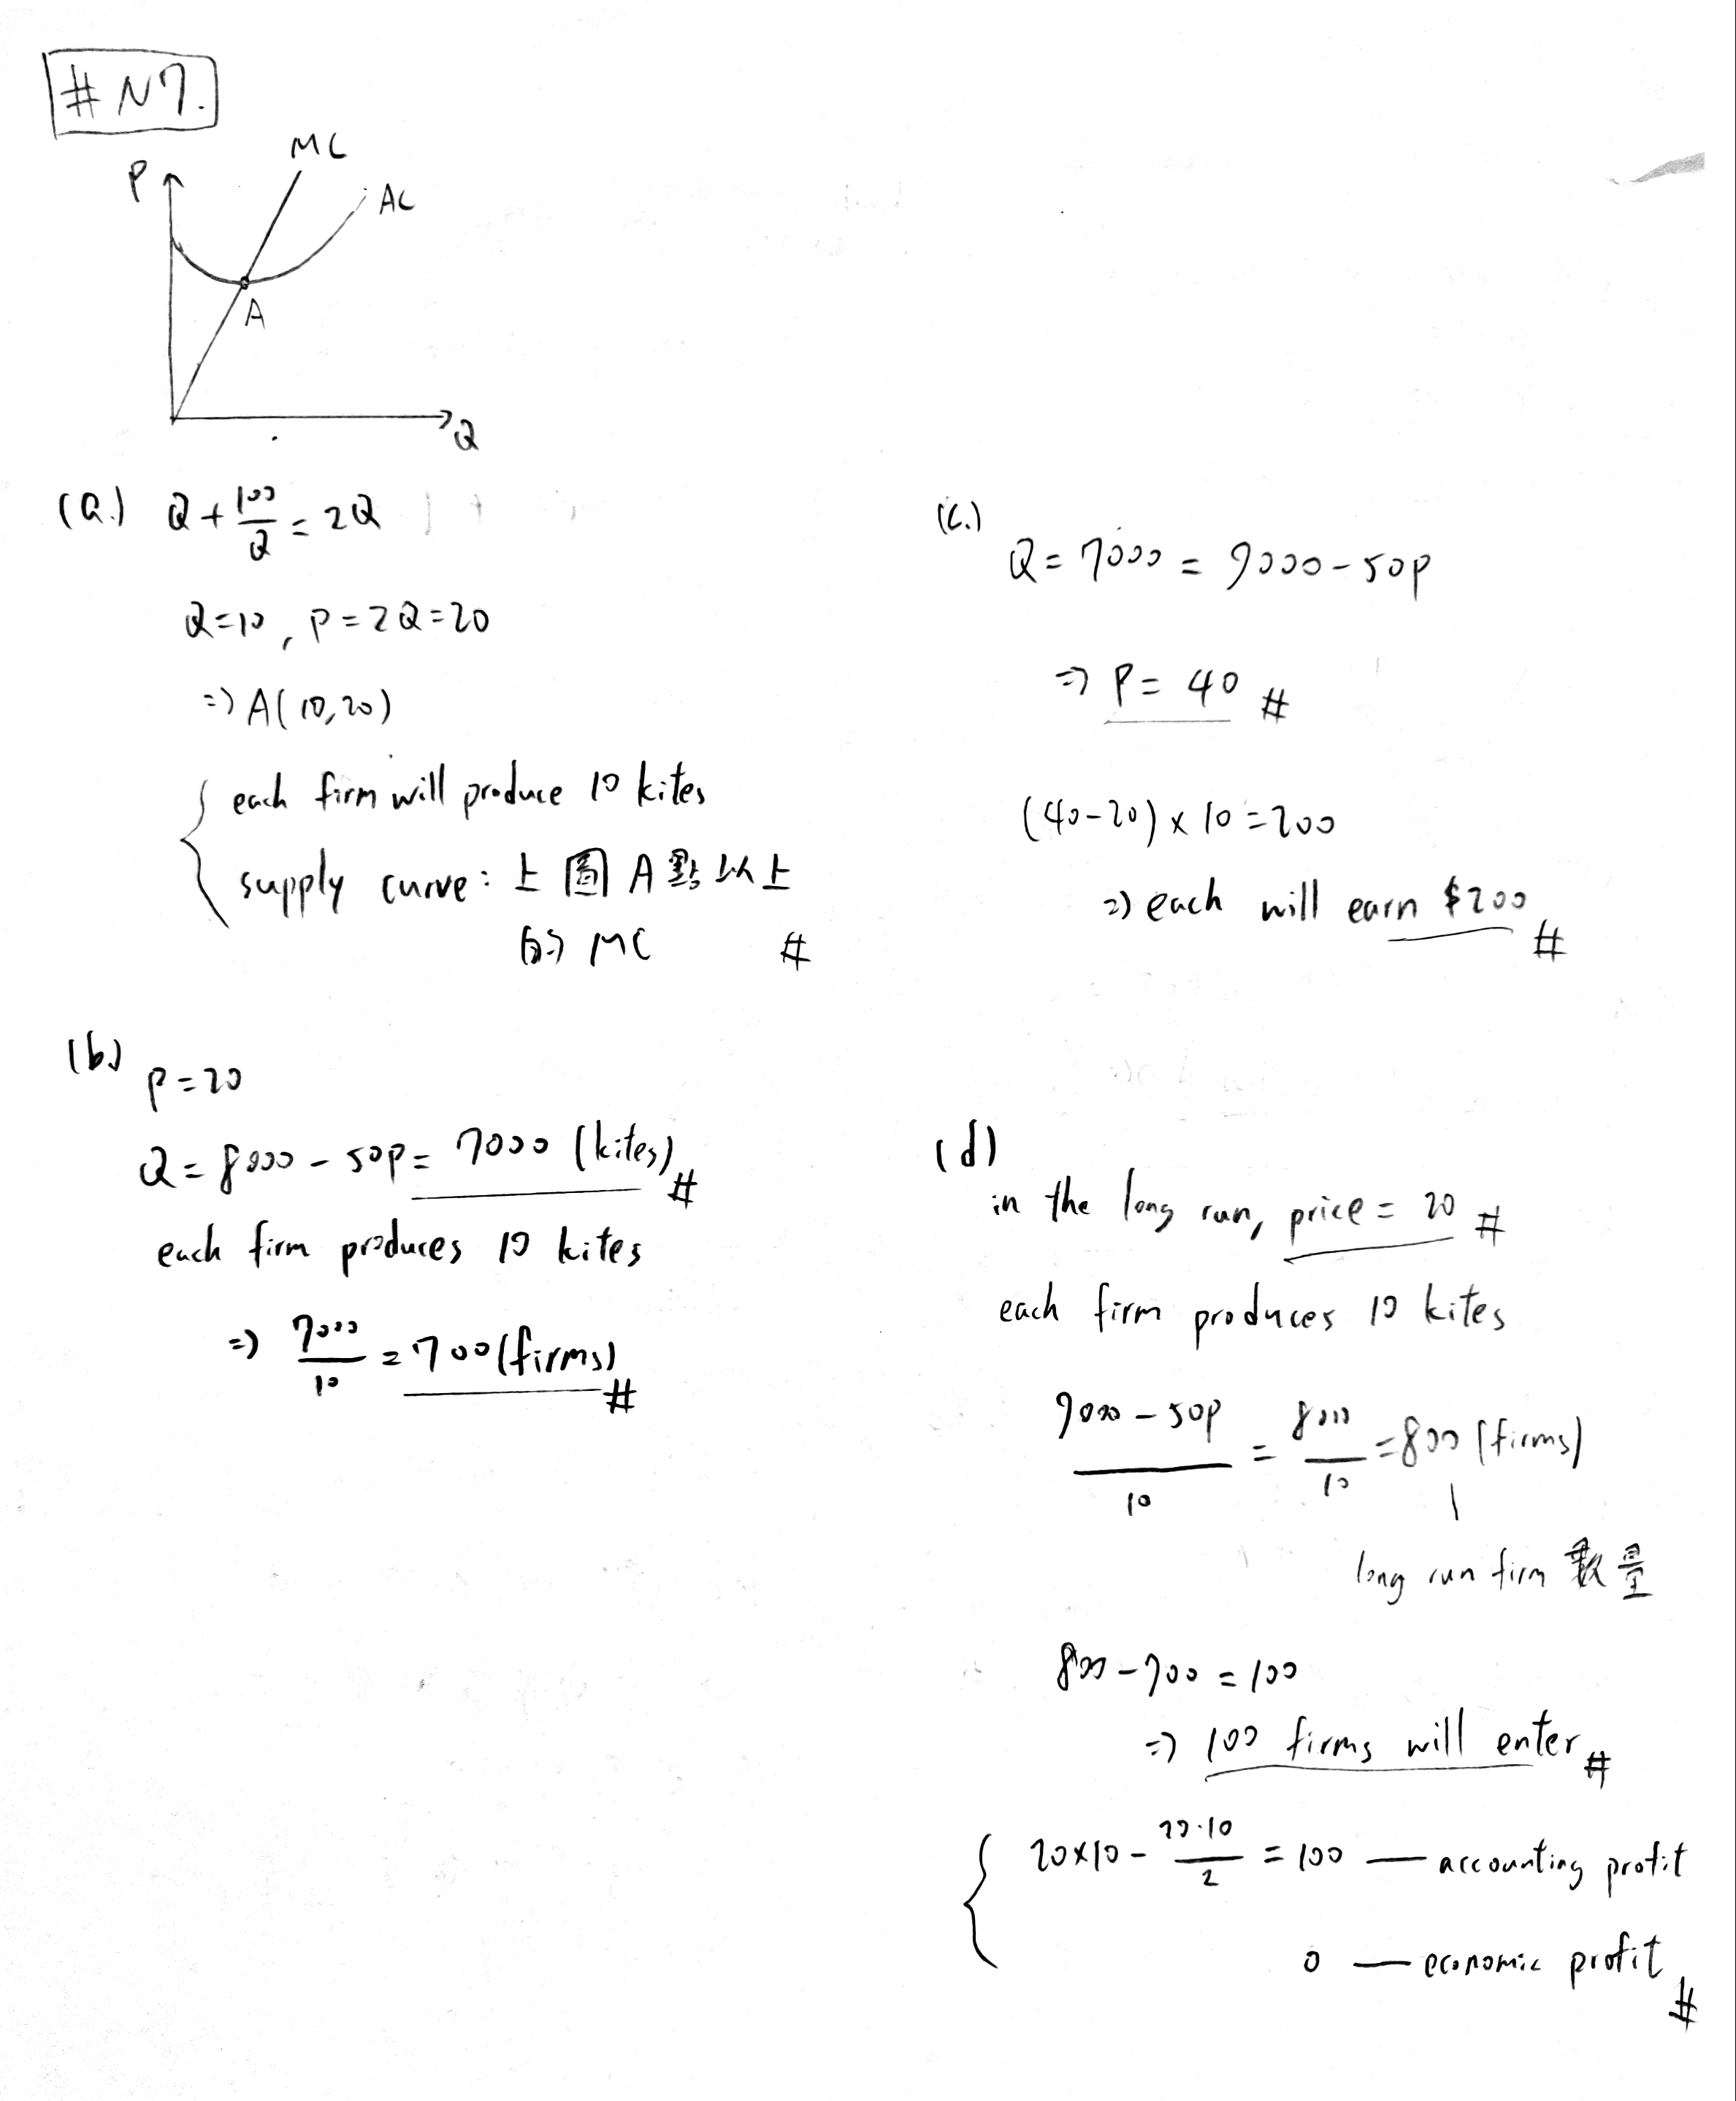 #N7.
MC
P
AC
A
Q
(a.) Q + 100/Q = 2Q
Q=10, P=2Q=20
=> A(10,20)
each firm will produce 10 kites
supply curve: 上圖A點以上
的 MC #
(b.) P=20
Q = 8000 - 50P = 7000 (kites) #
each firm produces 10 kites
=> 7000/10 = 700 (firms) #
(c.)
Q = 7000 = 9000 - 50P
=> P = 40 #
(40-20) x 10 = 200
=> each will earn $200 #
(d)
in the long run, price = 20 #
each firm produces 10 kites
9000 - 50P / 10 = 8000/10 = 800 (firms)
long run firm 數量
800 - 700 = 100
=> 100 firms will enter #
20x10 - 20·10/2 = 100 — accounting profit
0 — economic profit #